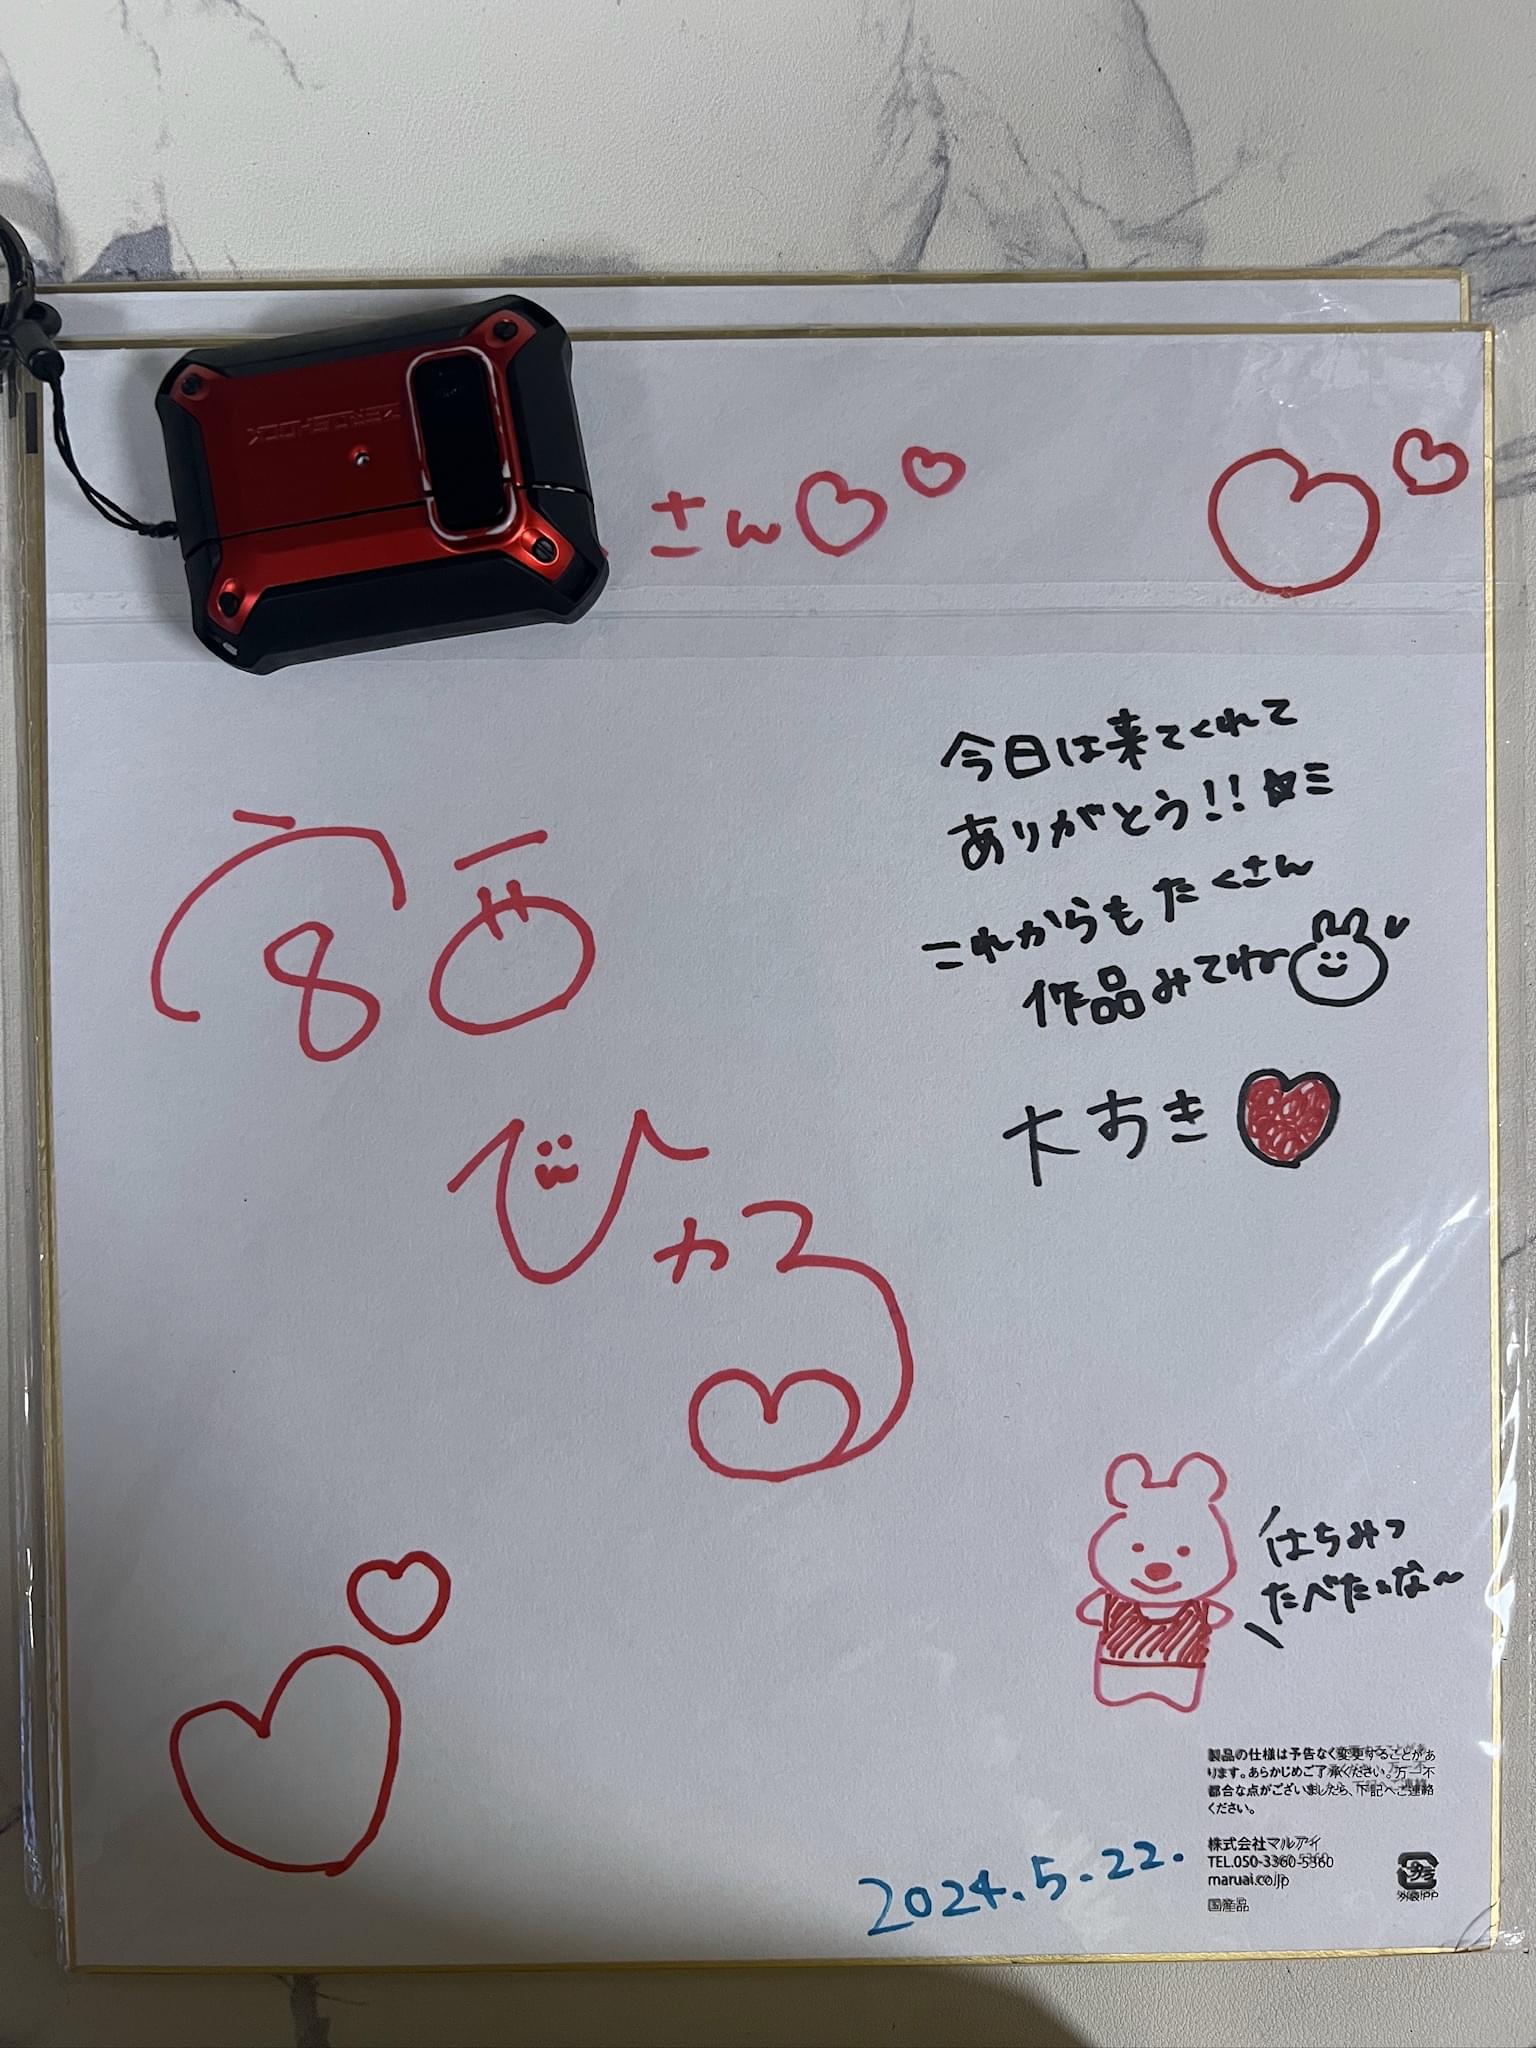 さん
今日は来てくれて
ありがとう!!
これからもたくさん
作品みてね
大すき
はちみつ
たべたいな〜
製品の仕様は予告なく変更することがあ
ります。あらかじめご了承ください。万一不
都合な点がございましたら、下記へご連絡
ください。
株式会社マルアイ
TEL.050-3360-5360
maruai.co.jp
国産品
プラ
外袋:PP
2024.5.22.